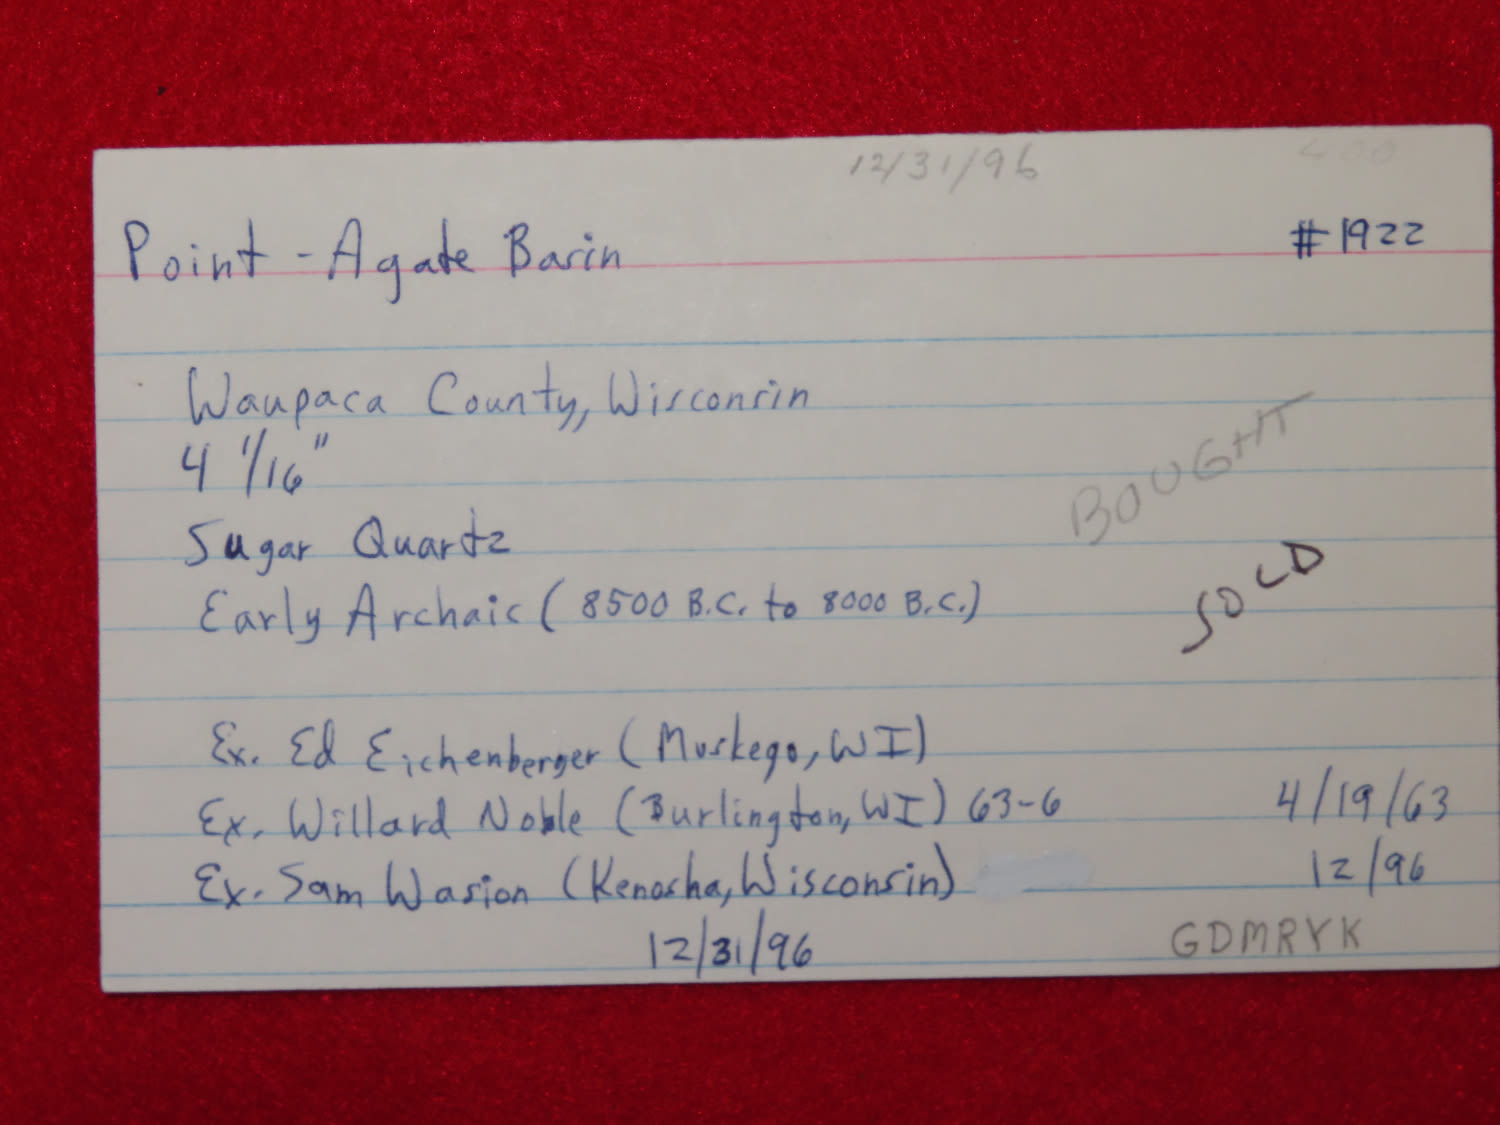 12/31/96
Point - Agate Basin #1922
Waupaca County, Wisconsin
4 1/16"
BOUGHT
Sugar Quartz
SOLD
Early Archaic (8500 B.C. to 8000 B.C.)
Ex. Ed Eichenberger (Muskego, WI)
Ex. Willard Noble (Burlington, WI) 63-6 4/19/63
Ex. Sam Wasion (Kenosha, Wisconsin) 12/96
12/31/96 GDMRYK